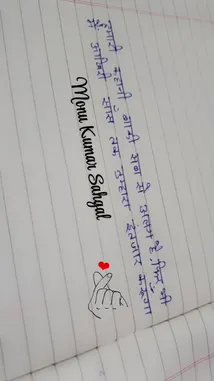 हमारी कहानी भाड़ी सब से अलग है, किन्तु भी
मैं आखिरी सांस तक तुम्हारा इंतजार करूँगा
Monu Kumar Sahgal